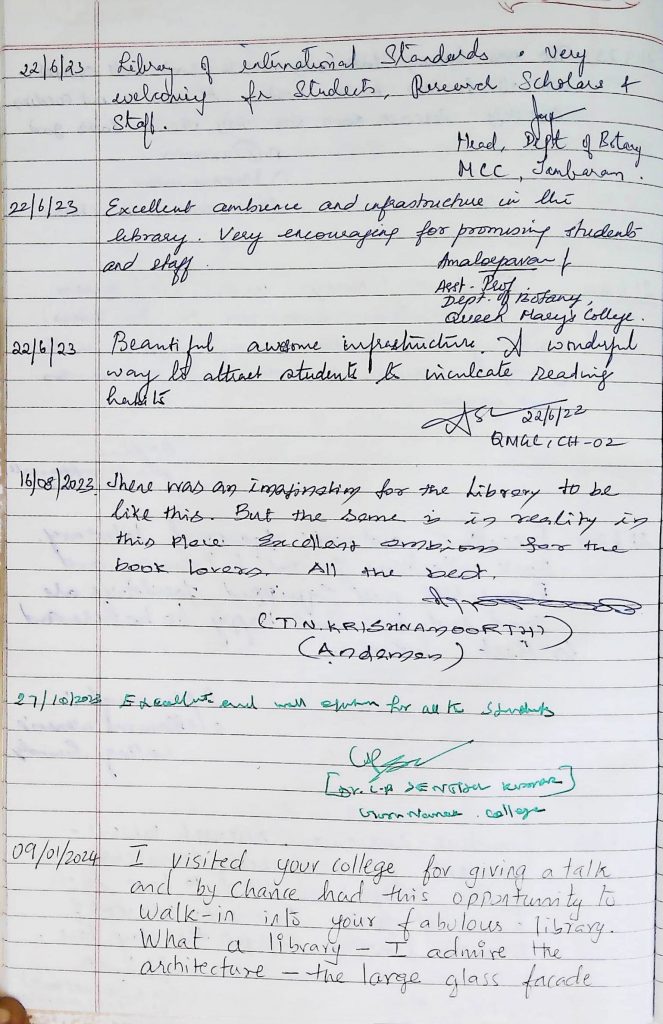 22/6/23 Library of international Standards. Very
welcoming for Students, Research Scholars &
Staff.
Head, Dept of Botany
MCC, Tambaram.
22/6/23 Excellent ambience and infrastructure in the
library. Very encouraging for promising students
and staff.
Asst. Prof
Dept. of Botany,
Queen Mary's College.
22/6/23 Beautiful awsome infrastructure. A wonderful
way to attract students to inculcate reading
habits
22/6/22
QMGC, CH-02
16/08/2023 There was an imagination for the Library to be
like this. But the same is in reality in
this place. Excellent ambions for the
book lovers. All the best.
(T.N. KRISHNAMOORTHY)
(Andaman)
27/10/2023 Excellent and well for all the Students
[Dr. SENTHIL KUMAR]
Guru Nanak College
09/01/2024 I visited your college for giving a talk
and by chance had this opportunity to
walk-in into your fabulous library.
What a library – I admire the
architecture – the large glass facade